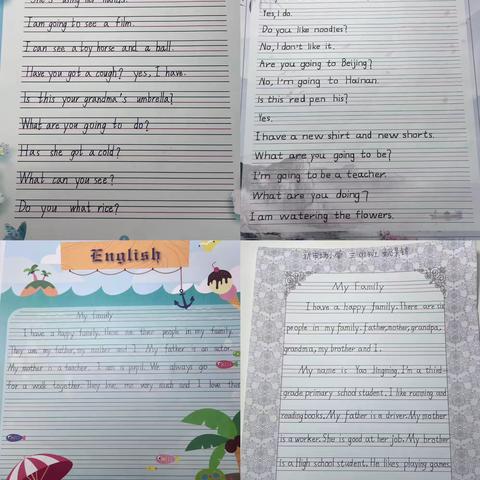 She's using her hands.
I am going to see a film.
I can see a toy horse and a ball.
Have you got a cough? yes, I have.
Is this your grandma's umbrella?
What are you going to do?
Has she got a cold?
What can you see?
Do you what rice?
Yes, I do.
Do you like noodles?
No, I don't like it.
Are you going to Beijing?
No, I'm going to Hainan.
Is this red pen his?
Yes.
I have a new shirt and new shorts.
What are you going to be?
I'm going to be a teacher.
What are you doing?
I am watering the flowers.
English
My family
I have a happy family. There are three people in my family.
They are my father, my mother and I. My father is an actor.
My mother is a teacher. I am a pupil. We always go
for a walk together. They love me very much and I love them
My Family
I have a happy family. There are six
people in my family. father, mother, grandpa,
grandma, my brother and I.
My name is Yao Jingming. I'm a third-
grade primary school student. I like running and
reading books. My father is a driver. My mother
is a worker. She is good at her job. My brother
is a High school student. He likes playing games